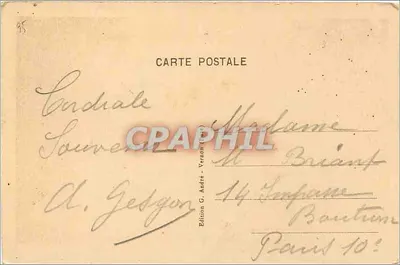 95
CARTE POSTALE
Cordiale
Souvenir
A. Gesgon
Edition G. André - Vernon
Madame
M Briant
14 Impasse
Boutron
Paris 10e
CPAPHIL